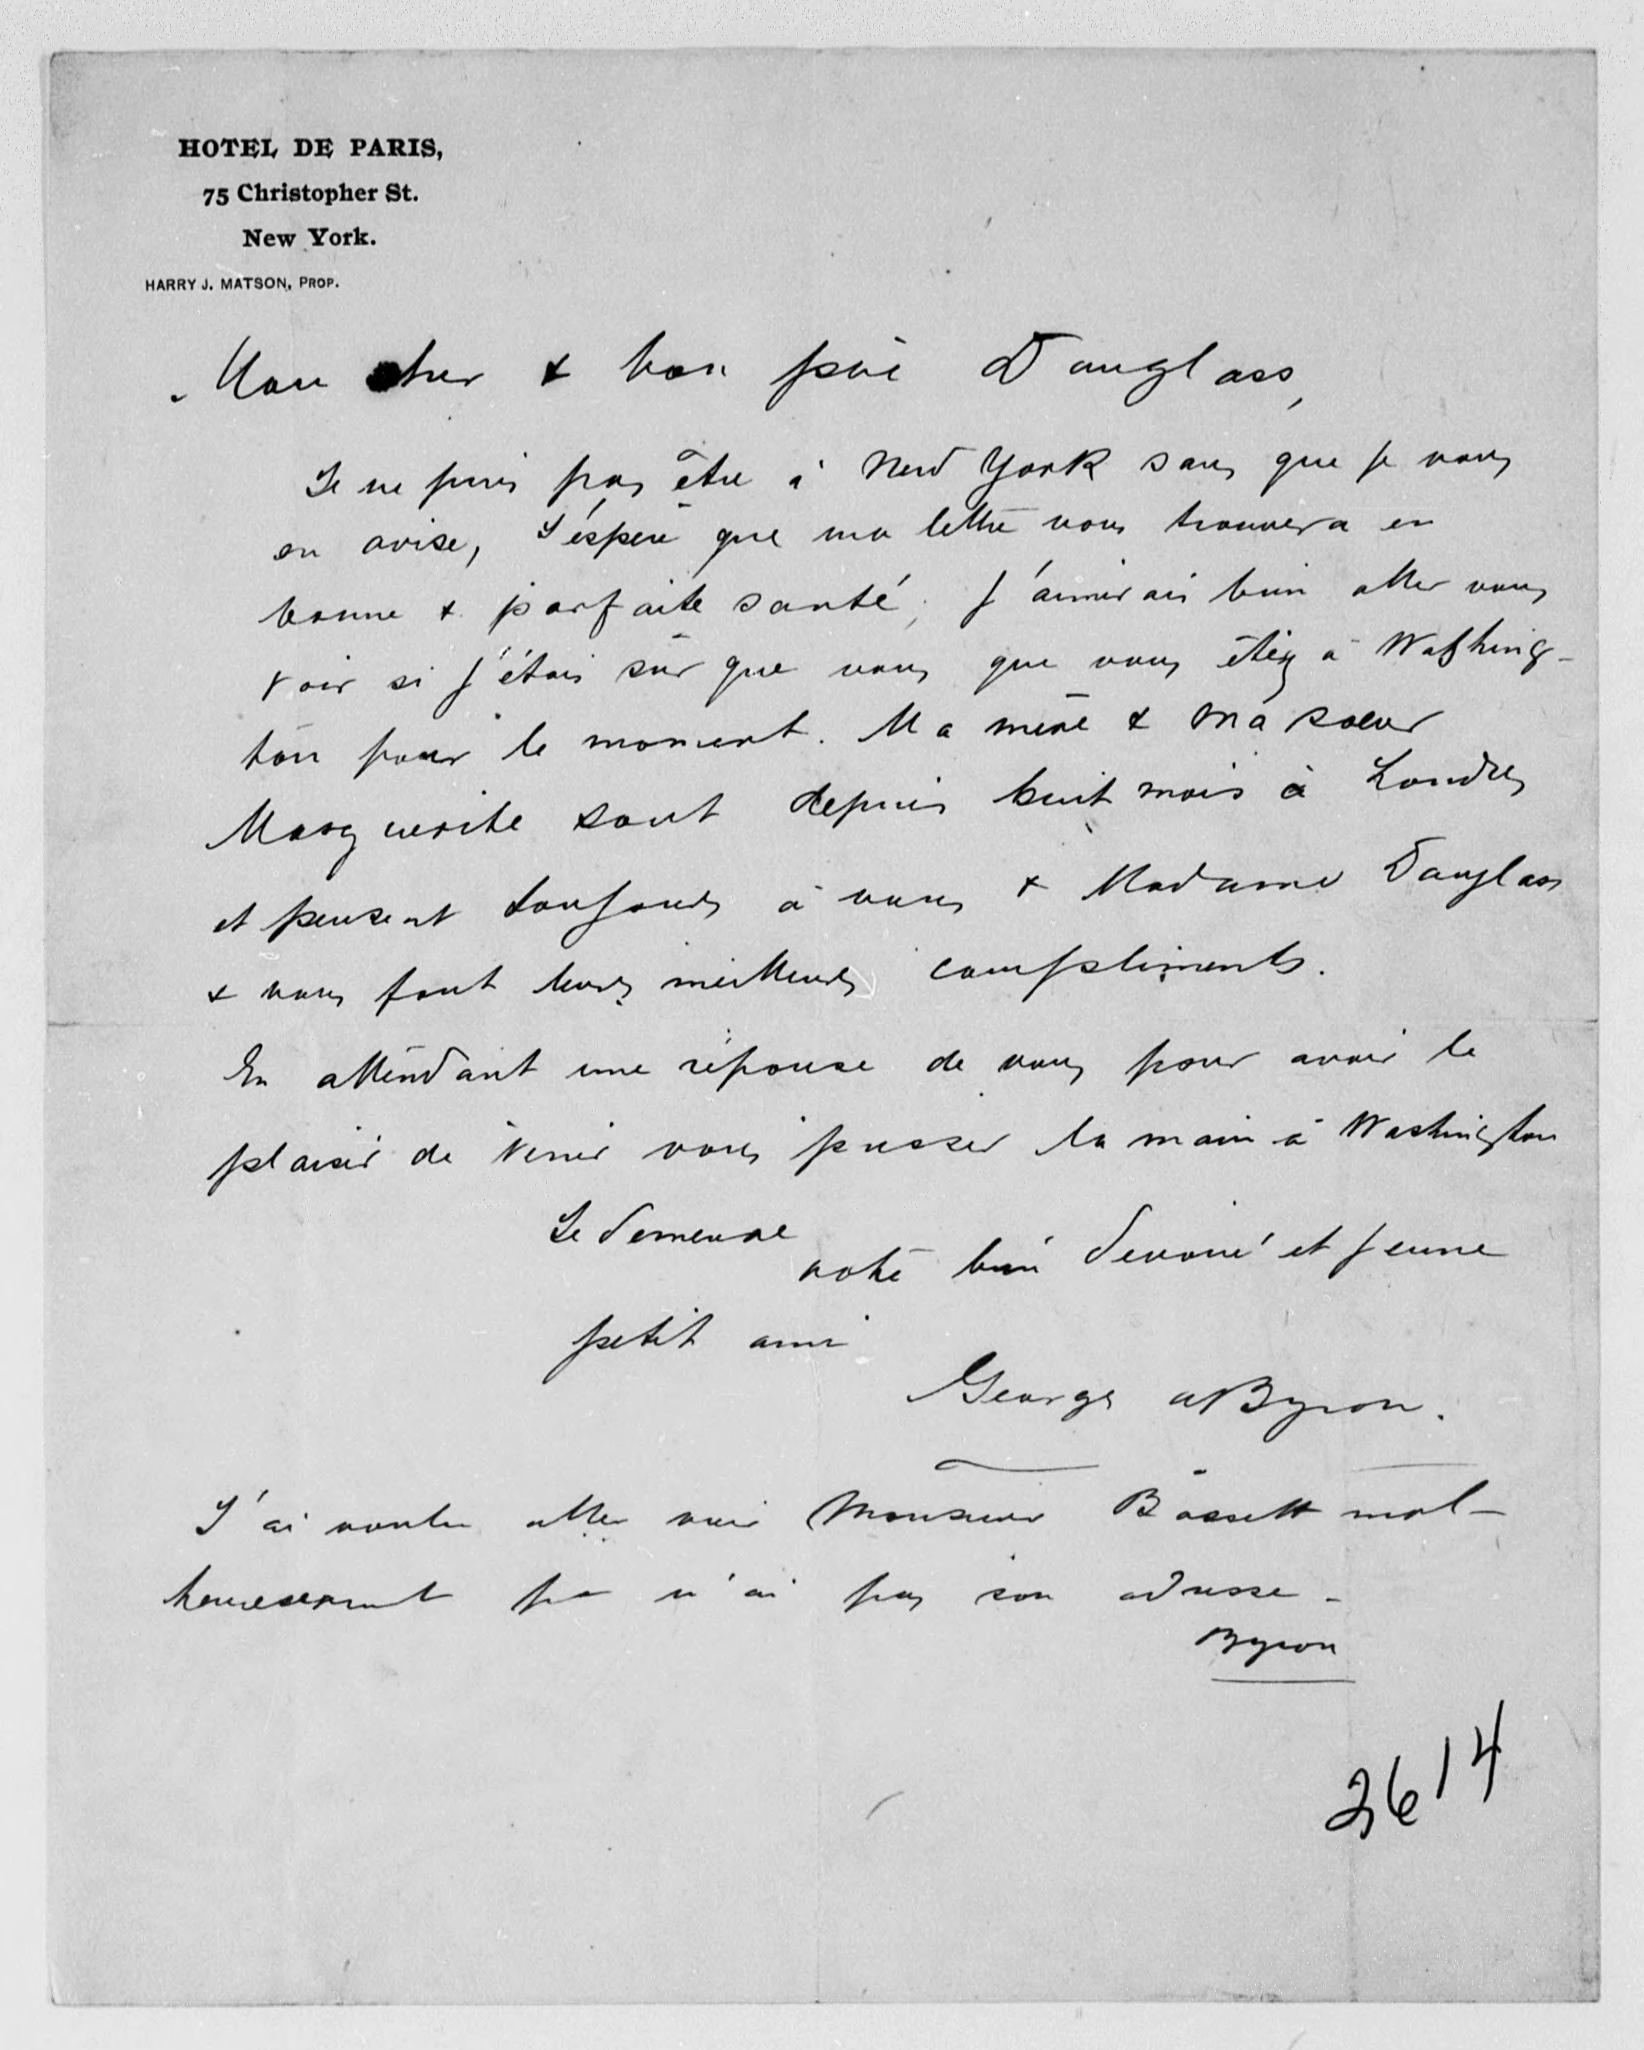 HOTEL DE PARIS,
75 Christopher St.
New York.
HARRY J. MATSON, PROP.
Mon cher & bon père Douglass,
Je ne puis pas être à New York sans que je vous
en avise, J'éspère que ma lettre vous trouvera en
bonne & parfaite santé, J'aimerais bien aller vous
voir si j'étais sûr que vous que vous étiez à Washing-
ton pour le moment. Ma mère & ma soeur
Marguerite sont depuis huit mois à Londres
et pensent toujours à vous & Madame Douglass
& vous font leurs meilleurs compliments.
En attendant une réponse de vous pour avoir le
plaisir de venir vous presser la main à Washington
Je demeure
votre bien devoué et jeune
petit ami
George Byron.
J'ai voulu aller voir Monsieur Bassett mal-
heureusement je n'ai pas son adresse -
Byron
3614